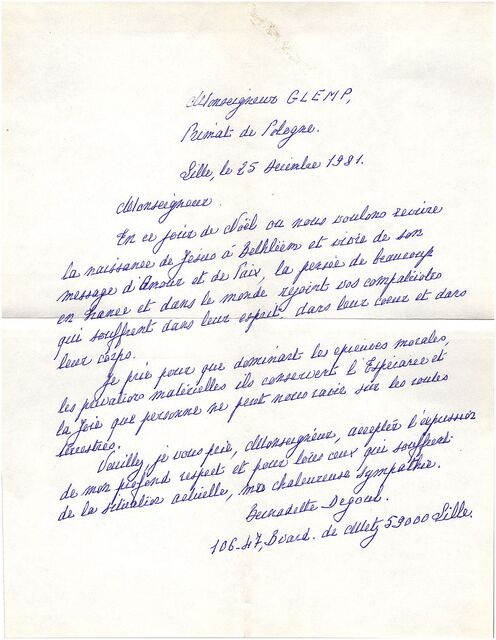 Monseigneur GLEMP,
Primat de Pologne.
Lille, le 25 Décembre 1981.
Monseigneur
En ce jour de Noël ou nous voulons revivre
la naissance de Jésus à Bethléem et vivre de son
message d'Amour et de Paix, la pensée de beaucoup
en France et dans le monde rejoint vos compatriotes
qui souffrent dans leur esprit, dans leur coeur et dans
leur corps.
Je prie pour que dominant les épreuves morales,
les privations matérielles ils conservent l'Espérance et
la Joie que personne ne peut nous ravir sur les routes
terrestres.
Veuillez je vous prie, Monseigneur, accepter l'expression
de mon profond respect et pour tous ceux qui souffrent
de la situation actuelle, ma chaleureuse sympathie.
Bernadette Degoul.
106-47, Bvard. de Metz 59000 Lille.